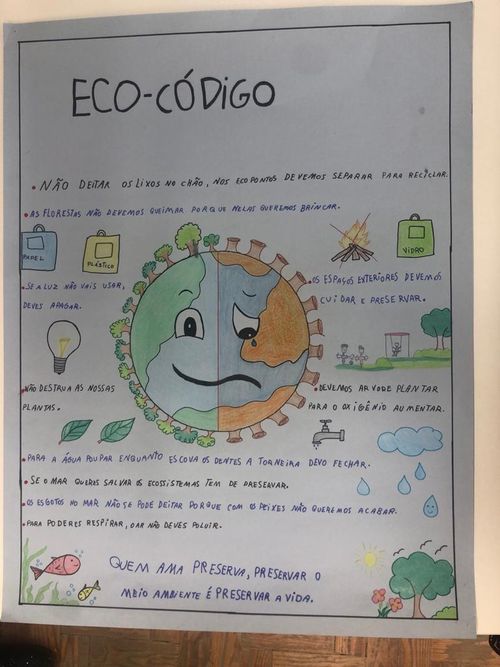 ECO-CÓDIGO
• NÃO DEITAR OS LIXOS NO CHÃO, NOS ECOPONTOS DEVEMOS SEPARAR PARA RECICLAR.
• AS FLORESTAS NÃO DEVEMOS QUEIMAR PORQUE NELAS QUEREMOS BRINCAR.
PAPEL
PLÁSTICO
VIDRO
• SE A LUZ NÃO VAIS USAR,
DEVES APAGAR.
• OS ESPAÇOS EXTERIORES DEVEMOS
CUIDAR E PRESERVAR.
• NÃO DESTRUA AS NOSSAS
PLANTAS.
• DEVEMOS ARVORE PLANTAR
PARA O OXIGÊNIO AUMENTAR.
• PARA A ÁGUA POUPAR ENQUANTO ESCOVA OS DENTES A TORNEIRA DEVO FECHAR.
• SE O MAR QUERES SALVAR OS ECOSSISTEMAS TEM DE PRESERVAR.
• OS ESGOTOS NO MAR NÃO SE PODE DEITAR PORQUE COM OS PEIXES NÃO QUEREMOS ACABAR.
• PARA PODERES RESPIRAR, O AR NÃO DEVES POLUIR.
QUEM AMA PRESERVA, PRESERVAR O
MEIO AMBIENTE É PRESERVAR A VIDA.